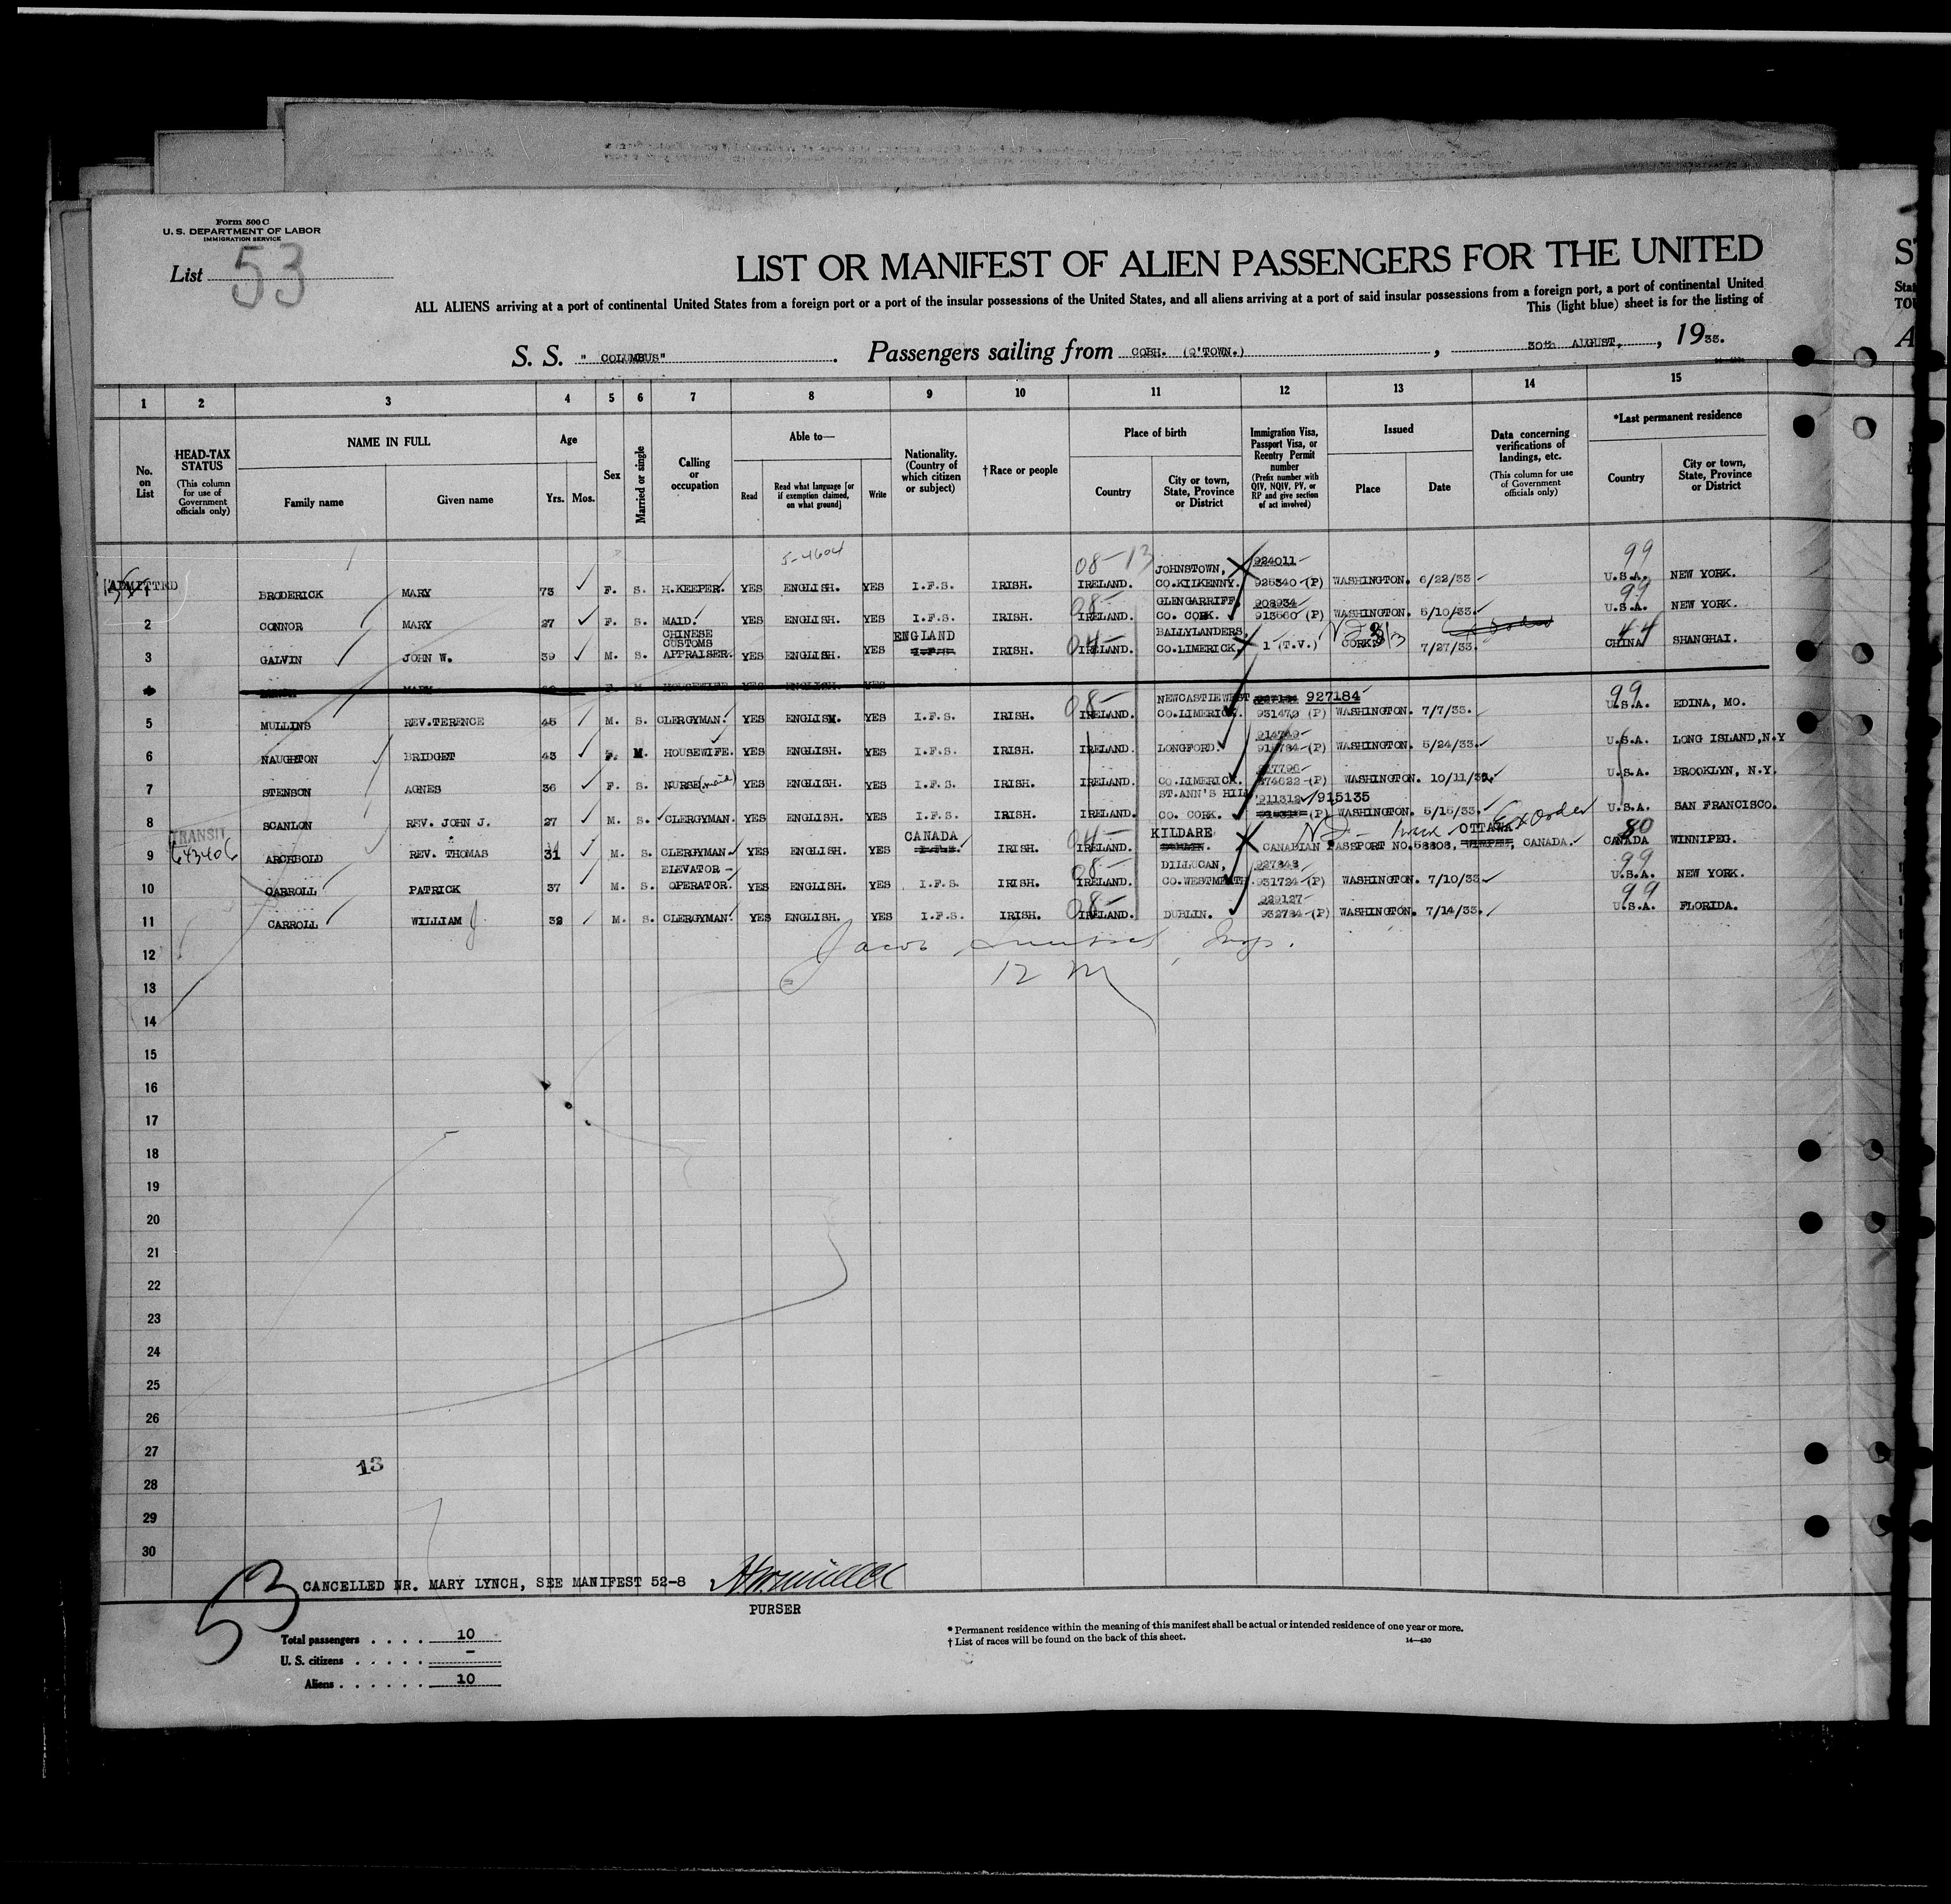 Form 500 C
U. S. DEPARTMENT OF LABOR
IMMIGRATION SERVICE
List 53
LIST OR MANIFEST OF ALIEN PASSENGERS FOR THE UNITED
ALL ALIENS arriving at a port of continental United States from a foreign port or a port of the insular possessions of the United States, and all aliens arriving at a port of said insular possessions from a foreign port, a port of continental United
This (light blue) sheet is for the listing of
S. S. "COLUMBUS". Passengers sailing from COBH. (Q'TOWN.), 30th AUGUST, , 1933.
1 2 3 4 5 6 7 8 9 10 11 12 13 14 15
No. on List
HEAD-TAX STATUS (This column for use of Government officials only)
NAME IN FULL
Family name Given name
Age
Yrs. Mos.
Sex
Married or single
Calling or occupation
Able to—
Read
Read what language [or if exemption claimed, on what ground]
Write
Nationality. (Country of which citizen or subject)
†Race or people
Place of birth
Country
City or town, State, Province or District
Immigration Visa, Passport Visa, or Reentry Permit number (Prefix number with QIV, NQIV, PV, or RP and give section of act involved)
Issued
Place Date
Data concerning verifications of landings, etc. (This column for use of Government officials only)
*Last permanent residence
Country
City or town, State, Province or District
5-4604 08-13 JOHNSTOWN, 924011 99
ADMITTED BRODERICK MARY 73 F. S. H.KEEPER. YES ENGLISH. YES I.F.S. IRISH. IRELAND. CO.KILKENNY. 925340 (P) WASHINGTON. 6/22/33 U.S.A. NEW YORK.
08- GLENGARRIFF, 908934 99
2 CONNOR MARY 27 F. S. MAID. YES ENGLISH. YES I.F.S. IRISH. IRELAND. CO. CORK. 913560 (P) WASHINGTON. 5/10/33. U.S.A. NEW YORK.
CHINESE CUSTOMS ENGLAND 04- BALLYLANDERS, 44
3 GALVIN JOHN W. 39 M. S. APPRAISER. YES ENGLISH. YES I.F.S. IRISH. IRELAND. CO.LIMERICK. 1 (T.V.) CORK. 7/27/33. CHINA SHANGHAI.
MARY F. M. HOUSEWIFE YES ENGLISH. YES
08- NEWCASTLEWEST 927184 99
5 MULLINS REV.TERENCE 45 M. S. CLERGYMAN. YES ENGLISH. YES I.F.S. IRISH. IRELAND. CO.LIMERICK. 931479 (P) WASHINGTON. 7/7/33. U.S.A. EDINA, MO.
6 NAUGHTON BRIDGET 43 F. M. HOUSEWIFE. YES ENGLISH. YES I.F.S. IRISH. IRELAND. LONGFORD. (P) WASHINGTON. 5/24/33. U.S.A. LONG ISLAND,N.Y
7 STENSON AGNES 36 F. S. NURSE (maid) YES ENGLISH. YES I.F.S. IRISH. IRELAND. CO.LIMERICK. 874622 (P) WASHINGTON. 10/11/32. U.S.A. BROOKLYN, N.Y.
ST.ANN'S HILL 911312 915135
8 SCANLON REV. JOHN J. 27 M. S. CLERGYMAN. YES ENGLISH. YES I.F.S. IRISH. IRELAND. CO. CORK. (P) WASHINGTON. 5/15/33. Ex Order U.S.A. SAN FRANCISCO.
TRANSIT CANADA 04- KILDARE OTTAWA 80
643406 9 ARCHBOLD REV. THOMAS 31 M. S. CLERGYMAN. YES ENGLISH. YES I.F.S. IRISH. IRELAND. DUBLIN. CANADIAN PASSPORT NO.58808, CANADA. CANADA WINNIPEG.
ELEVATOR - 08- DILLUCAN, 927848 99
10 CARROLL PATRICK 37 M. S. OPERATOR. YES ENGLISH. YES I.F.S. IRISH. IRELAND. CO.WESTMEATH 931724 (P) WASHINGTON. 7/10/33. U.S.A. NEW YORK.
08- 929127 99
11 CARROLL WILLIAM J 32 M. S. CLERGYMAN. YES ENGLISH. YES I.F.S. IRISH. IRELAND. DUBLIN. 932784 (P) WASHINGTON. 7/14/33. U.S.A. FLORIDA.
12 Jacob Insp.
13 12 M
14
15
16
17
18
19
20
21
22
23
24
25
26
27
13
28
29
30
53
CANCELLED NR. MARY LYNCH, SEE MANIFEST 52-8
PURSER
Total passengers . . . . 10
U. S. citizens . . . . . -
Aliens . . . . . . 10
* Permanent residence within the meaning of this manifest shall be actual or intended residence of one year or more.
† List of races will be found on the back of this sheet.
14—430